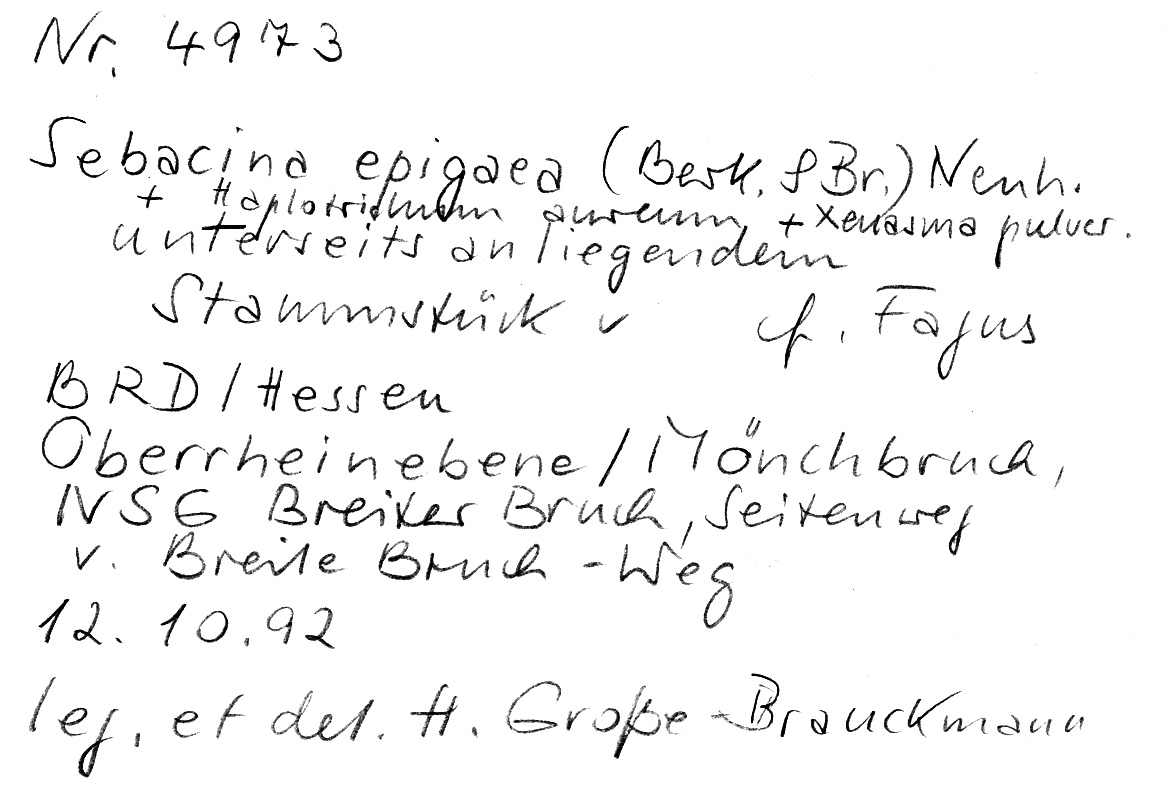 Nr. 4973
Sebacina epigaea (Berk. & Br.) Neuh.
+ Haplotrichum aureum, + Xenasma pulver.
unterseits an liegendem
Stammstück v cf. Fagus
BRD / Hessen
Oberrheinebene / Mönchbruch,
NSG Breiter Bruch, Seitenweg
v. Breite Bruch - Weg
12. 10. 92
leg. et det. H. Große - Brauckmann